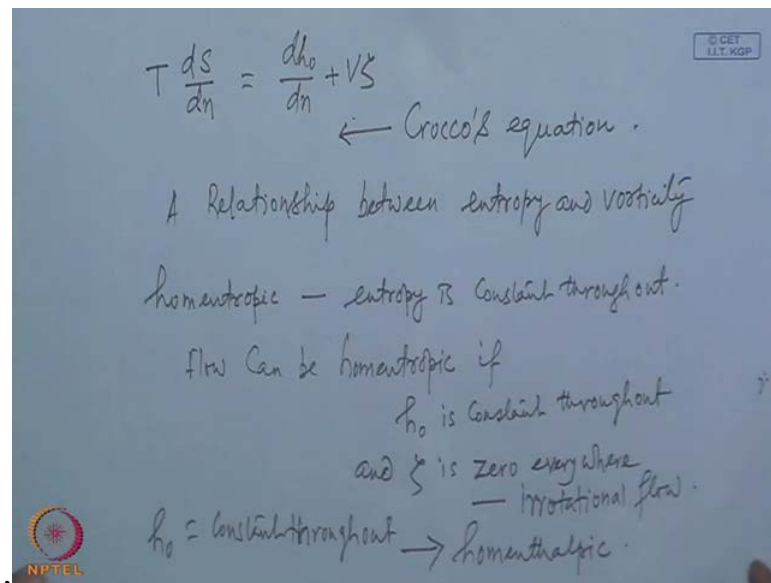 © CET
I.I.T. KGP
T ds/dn = dh₀/dn + Vζ
← Crocco's equation.
A Relationship between entropy and vorticity
homentropic — entropy is constant throughout.
flow Can be homentropic if
h₀ is constant throughout
and ζ is zero everywhere
— irrotational flow.
h₀ = constant throughout → homenthalpic.
NPTEL